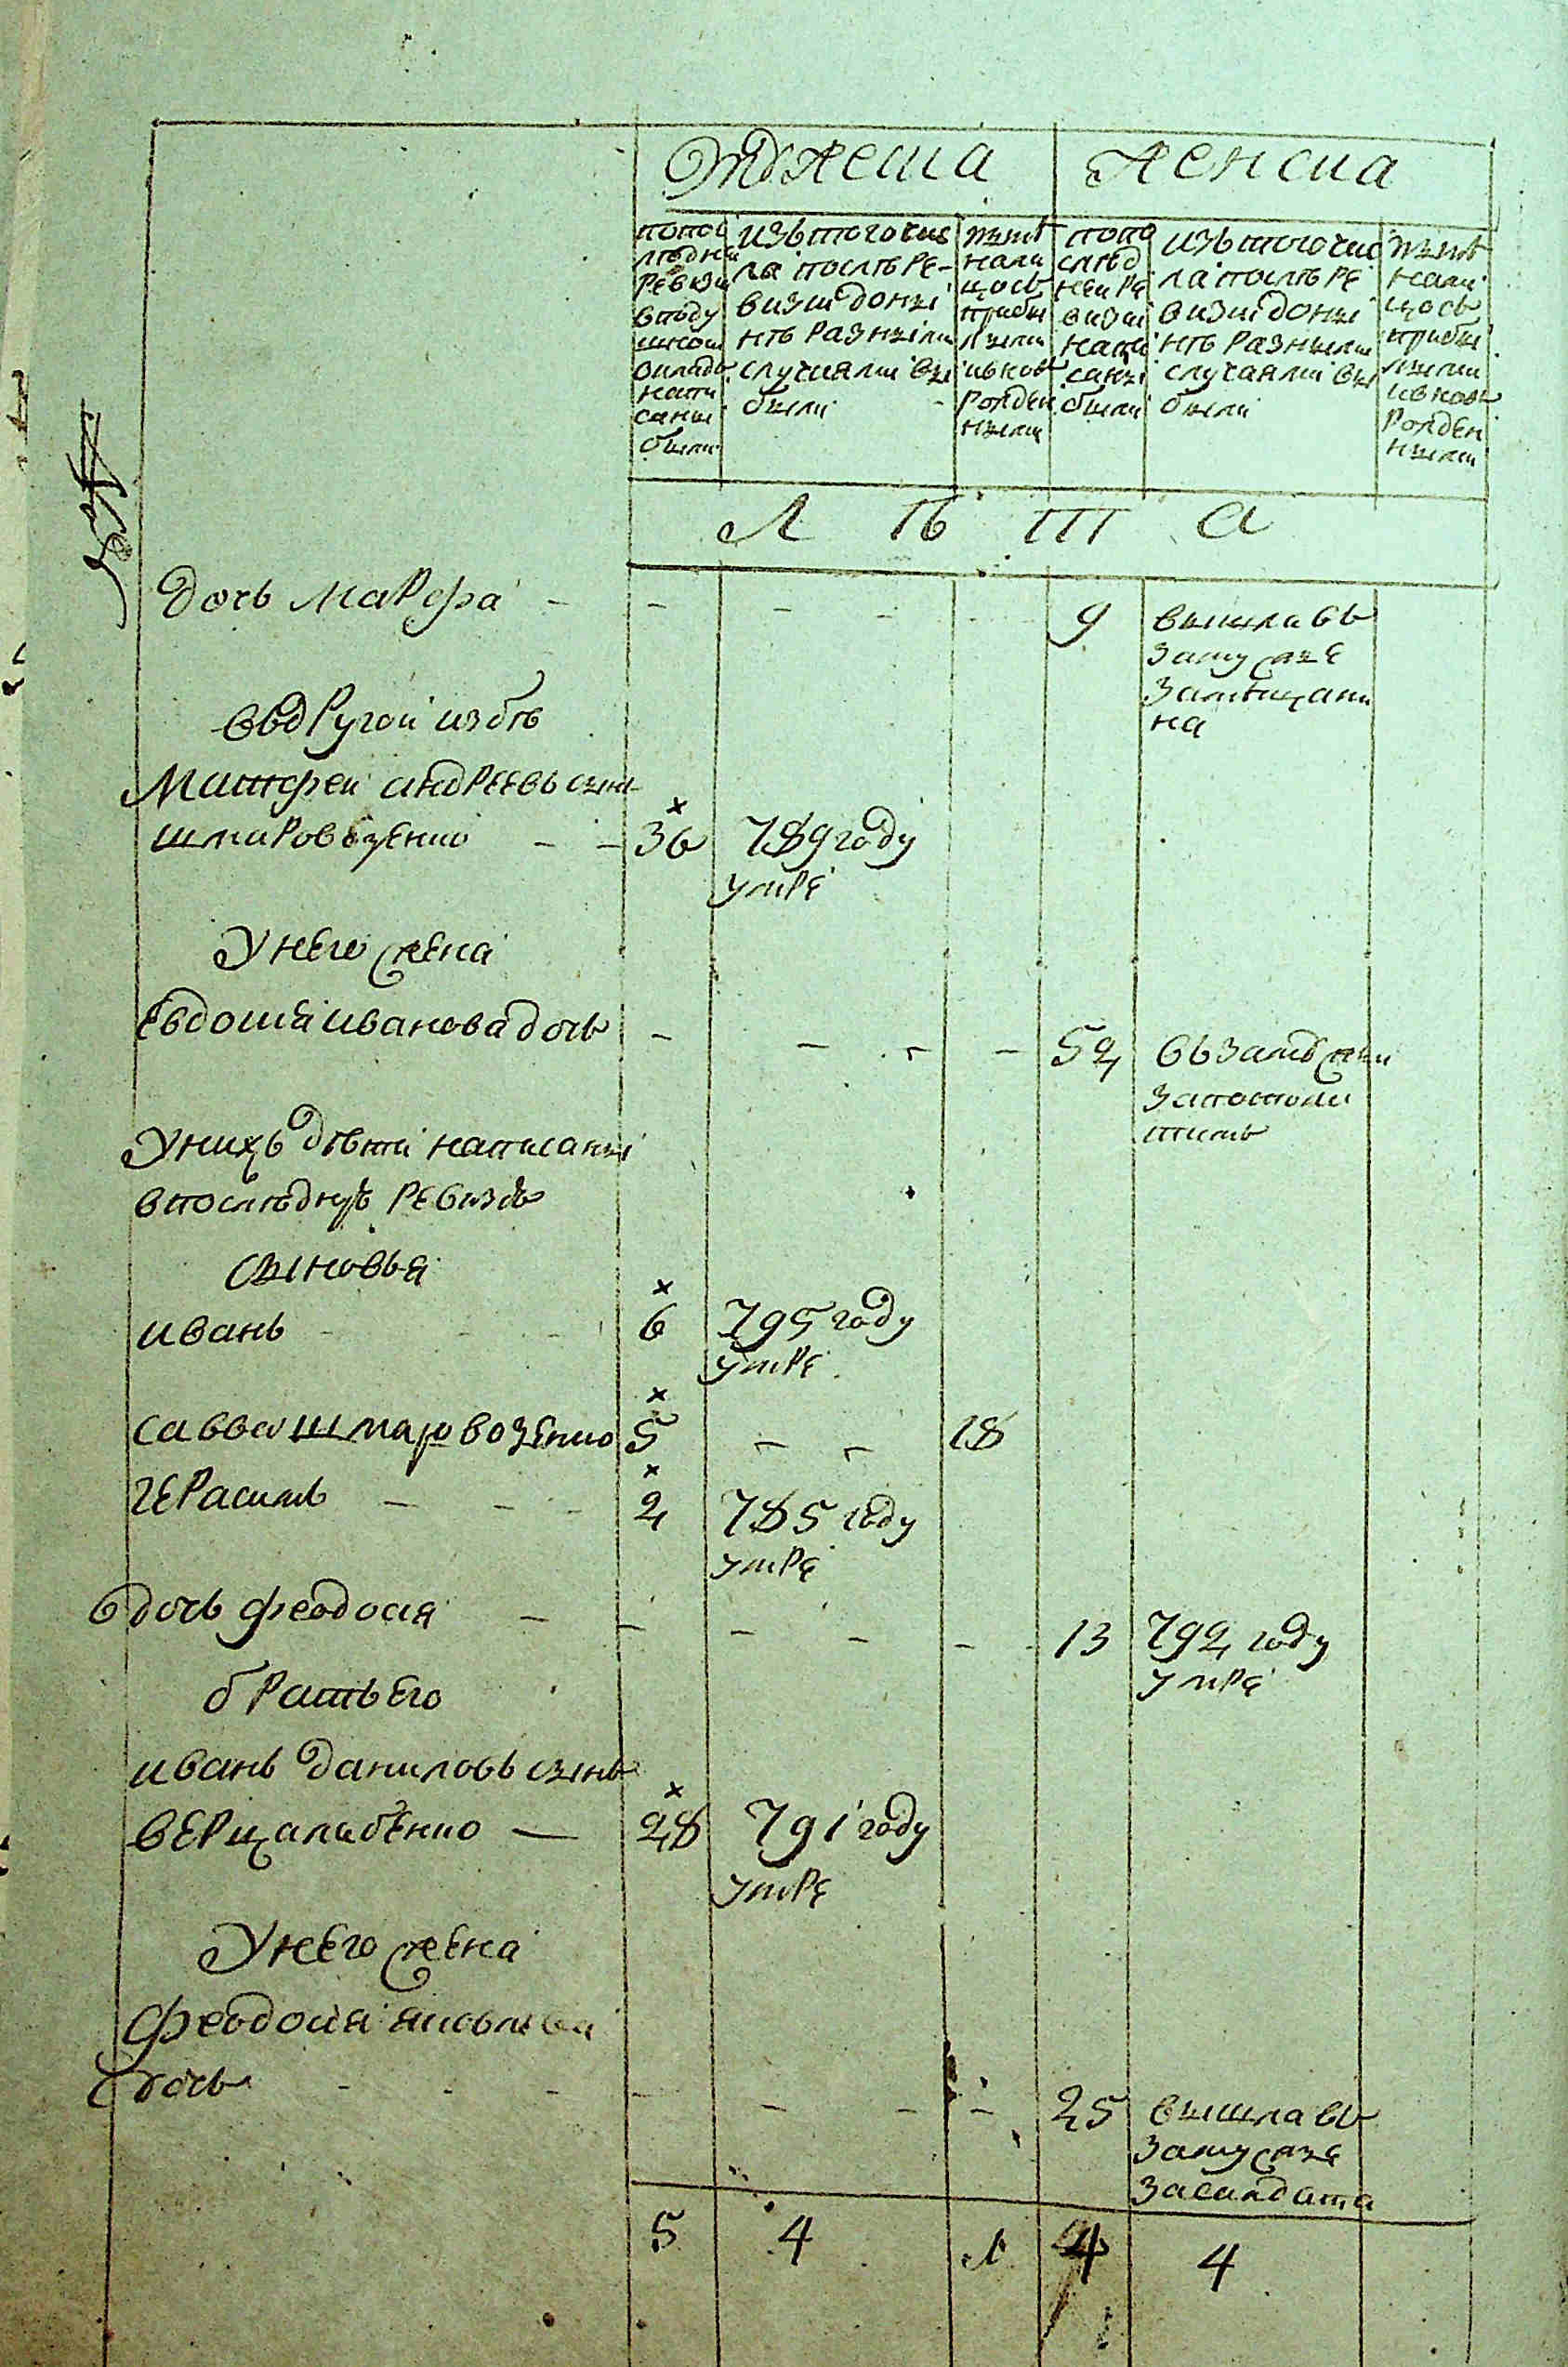 Мужеска
Женска
попос
лѣдней
ревизи
в году
написаны
были
изътого чис
ла послѣ ре-
визіи доны
нѣ разными
случиями вы
были
нынѣ
нали
цось
прибы
лыми
ивновь
рожден
ными
попо
слѣд
ней ре
визіи
напи
саны
были
изътого чис
ла послѣ ре
визіи доны
нѣ разными
случаями вы
были
нынѣ
нали
цось
прибы
лыми
ивновь
рожден
ными
Л Ѣ Т А
дочь Марфа - - - - 9 вышла въ
замужже
замѣщани
на
въдругой избѣ
Матфей андреевъ сынъ
шмаровозенко - - 36 789 году
умре
Унего жена
Евдокия иванова дочь - - - - 52
Унихъ дѣти написаны
в послѣдную ревизію
сыновья
иванъ - - - 6 795 году
умре
савва шмаровозенко 5 - - 18
герасимъ - - - 2 785 году
умре
дочь феодосия - - - - - 13 792 году
умре
братъ его
иванъ даниловъ сынъ
верцалабенко — 28 791 году
умре
Унего жена
Феодосия яковлева
дочь - - - - - - - 25 вышла въ
замужже
засалдата
5 4 1 4 4